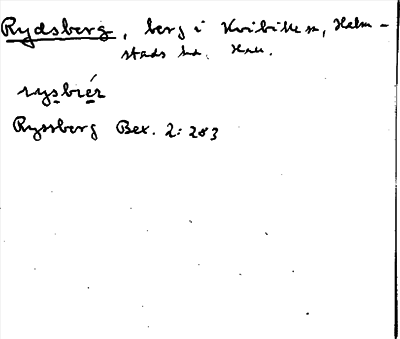 Rydsberg, berg i Kvibille sn, Halm-
stads hd. Hall.
rysbiér
Ryssberg Bex. 2:283